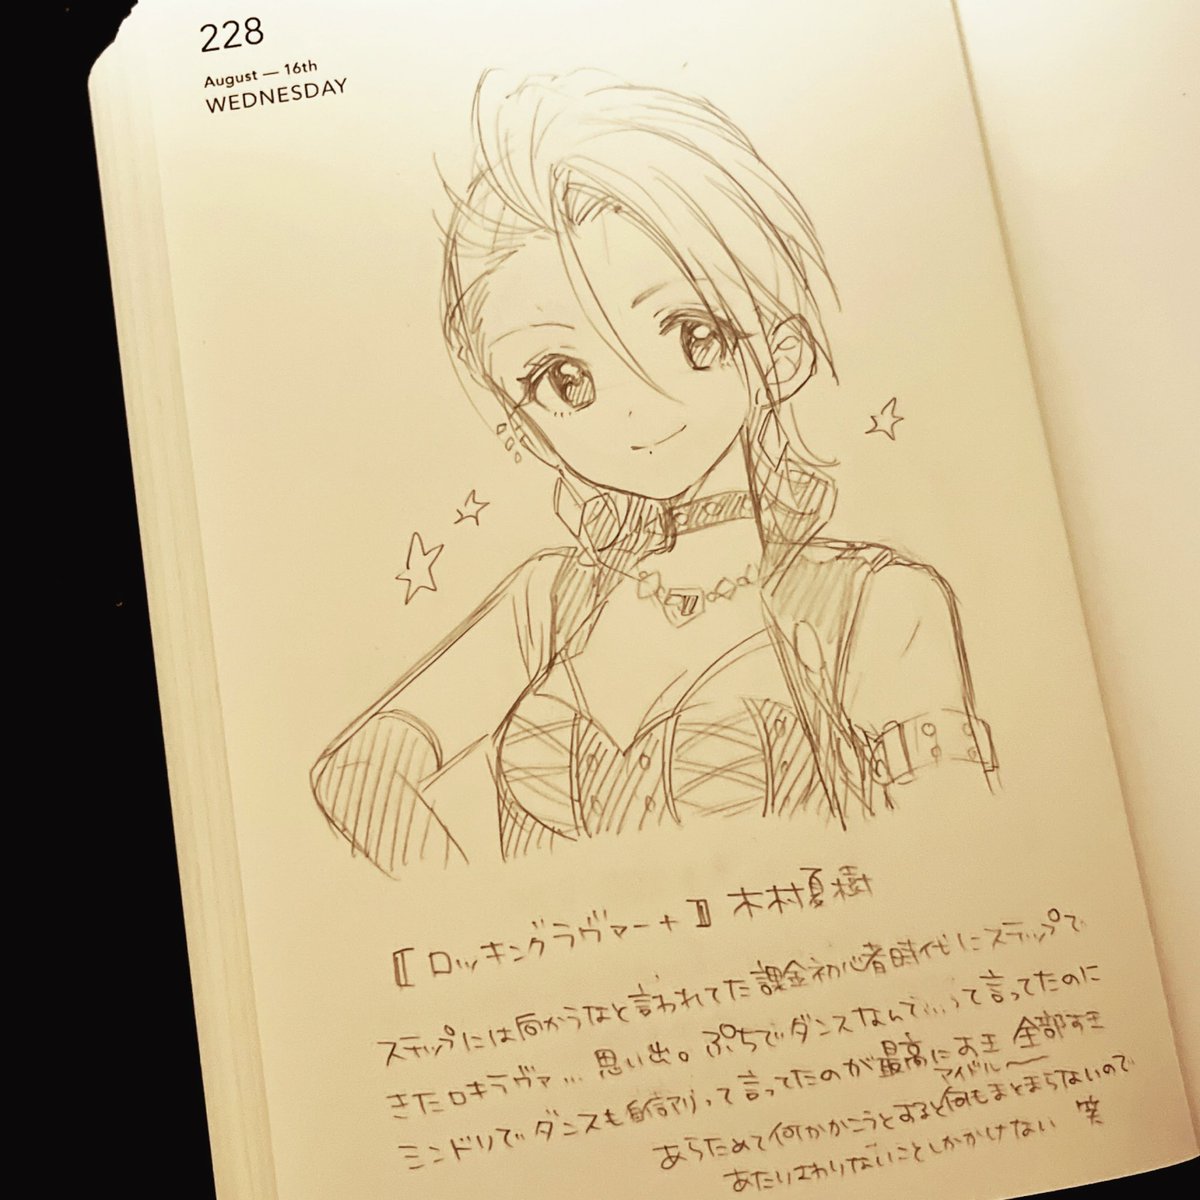 228
August — 16th
WEDNESDAY
【ロッキングラヴァー+】木村夏樹
ステップには向かうなと言われてた課金初心者時代にステップで
きたロキラヴァ…思い出。ぷちでダンスなんで…って言ってたのに
ミンドリでダンスも自信アリって言ってたのが最高にアイドル〜全部すき
あらためて何かかこうとすると何もまとまらないので
あたりさわりないことしかかけない 笑